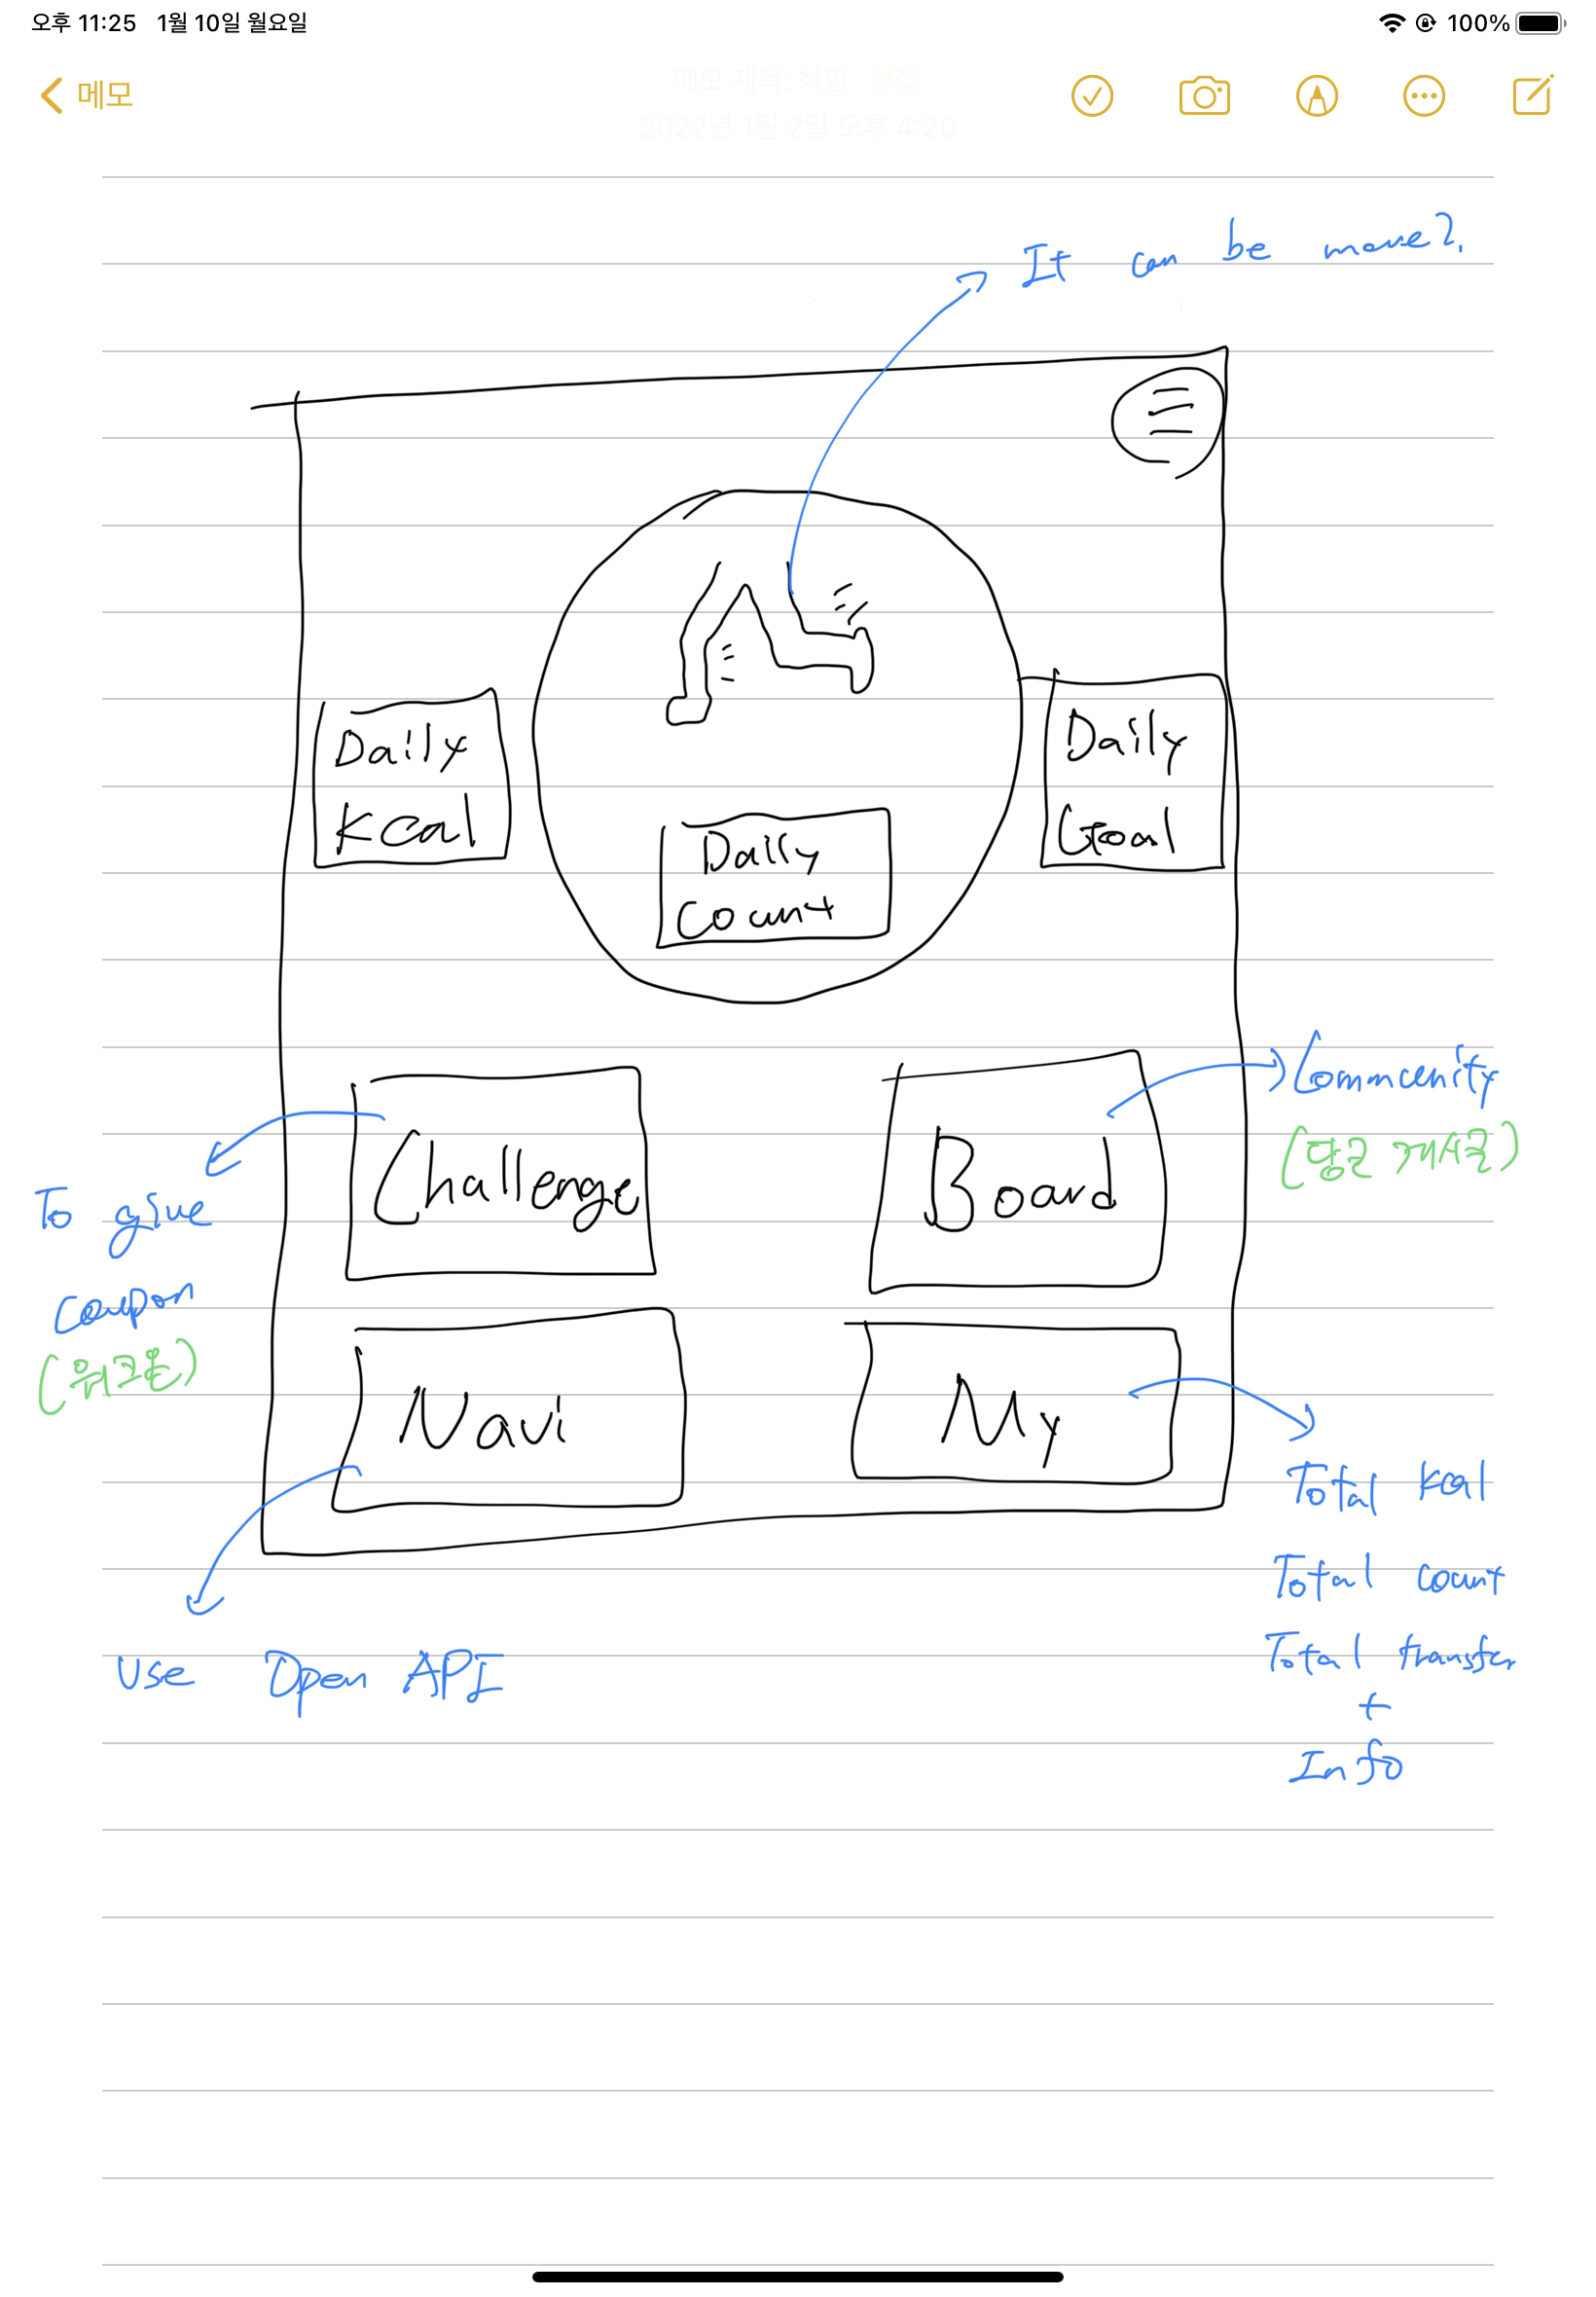 오후 11:25 1월 10일 월요일
100%
메모
메모 제목: 화면 편집
2022년 1월 2일 오후 4:20
It can be move?.
Daily
Kcal
Daily
Goal
Daily
Count
Challenge
Board
Community
(당근 게시글)
To give
coupon
(워크온)
Navi
My
Use Open API
Total kcal
Total count
Total transfer
+
Info